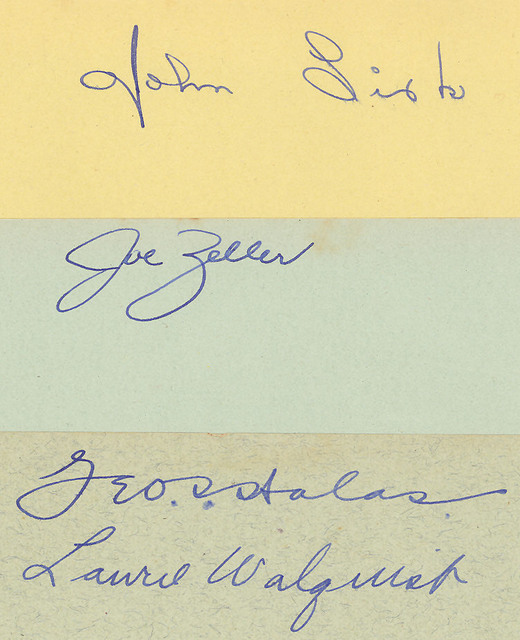 John Sisk
Joe Zeller
Geo. S. Halas
Laurie Walquist